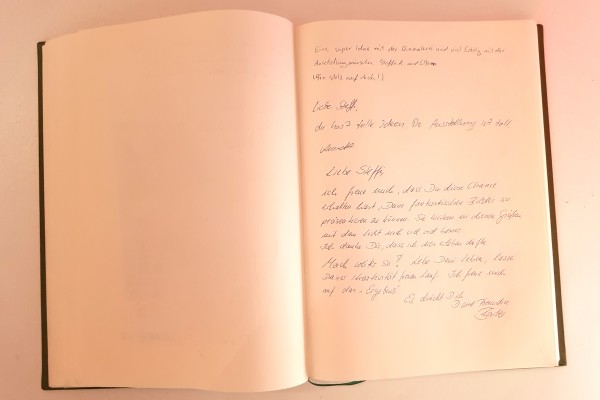 Eine super Idee mit der und viel Erfolg mit der
Ausstellung wünschen Steffi K und
(Bin stolz auf dich!)
Liebe Steffi,
du hast tolle Ideen. Die Ausstellung ist toll
Liebe Steffi
ich freue mich, dass Du diese Chance
erhalten hast, Deine fantastischen Bilder so
präsentieren zu können. Sie wirken in diesen Größen
mit dem Licht noch viel viel besser.
Ich danke Dir, dass ich dies erleben durfte.
Mach weiter so! Lebe Dein Leben, lasse
Deiner Kreativität freien Lauf. Ich freue mich
auf das "Ergebnis"
Es drückt Dich
Deine Freundin